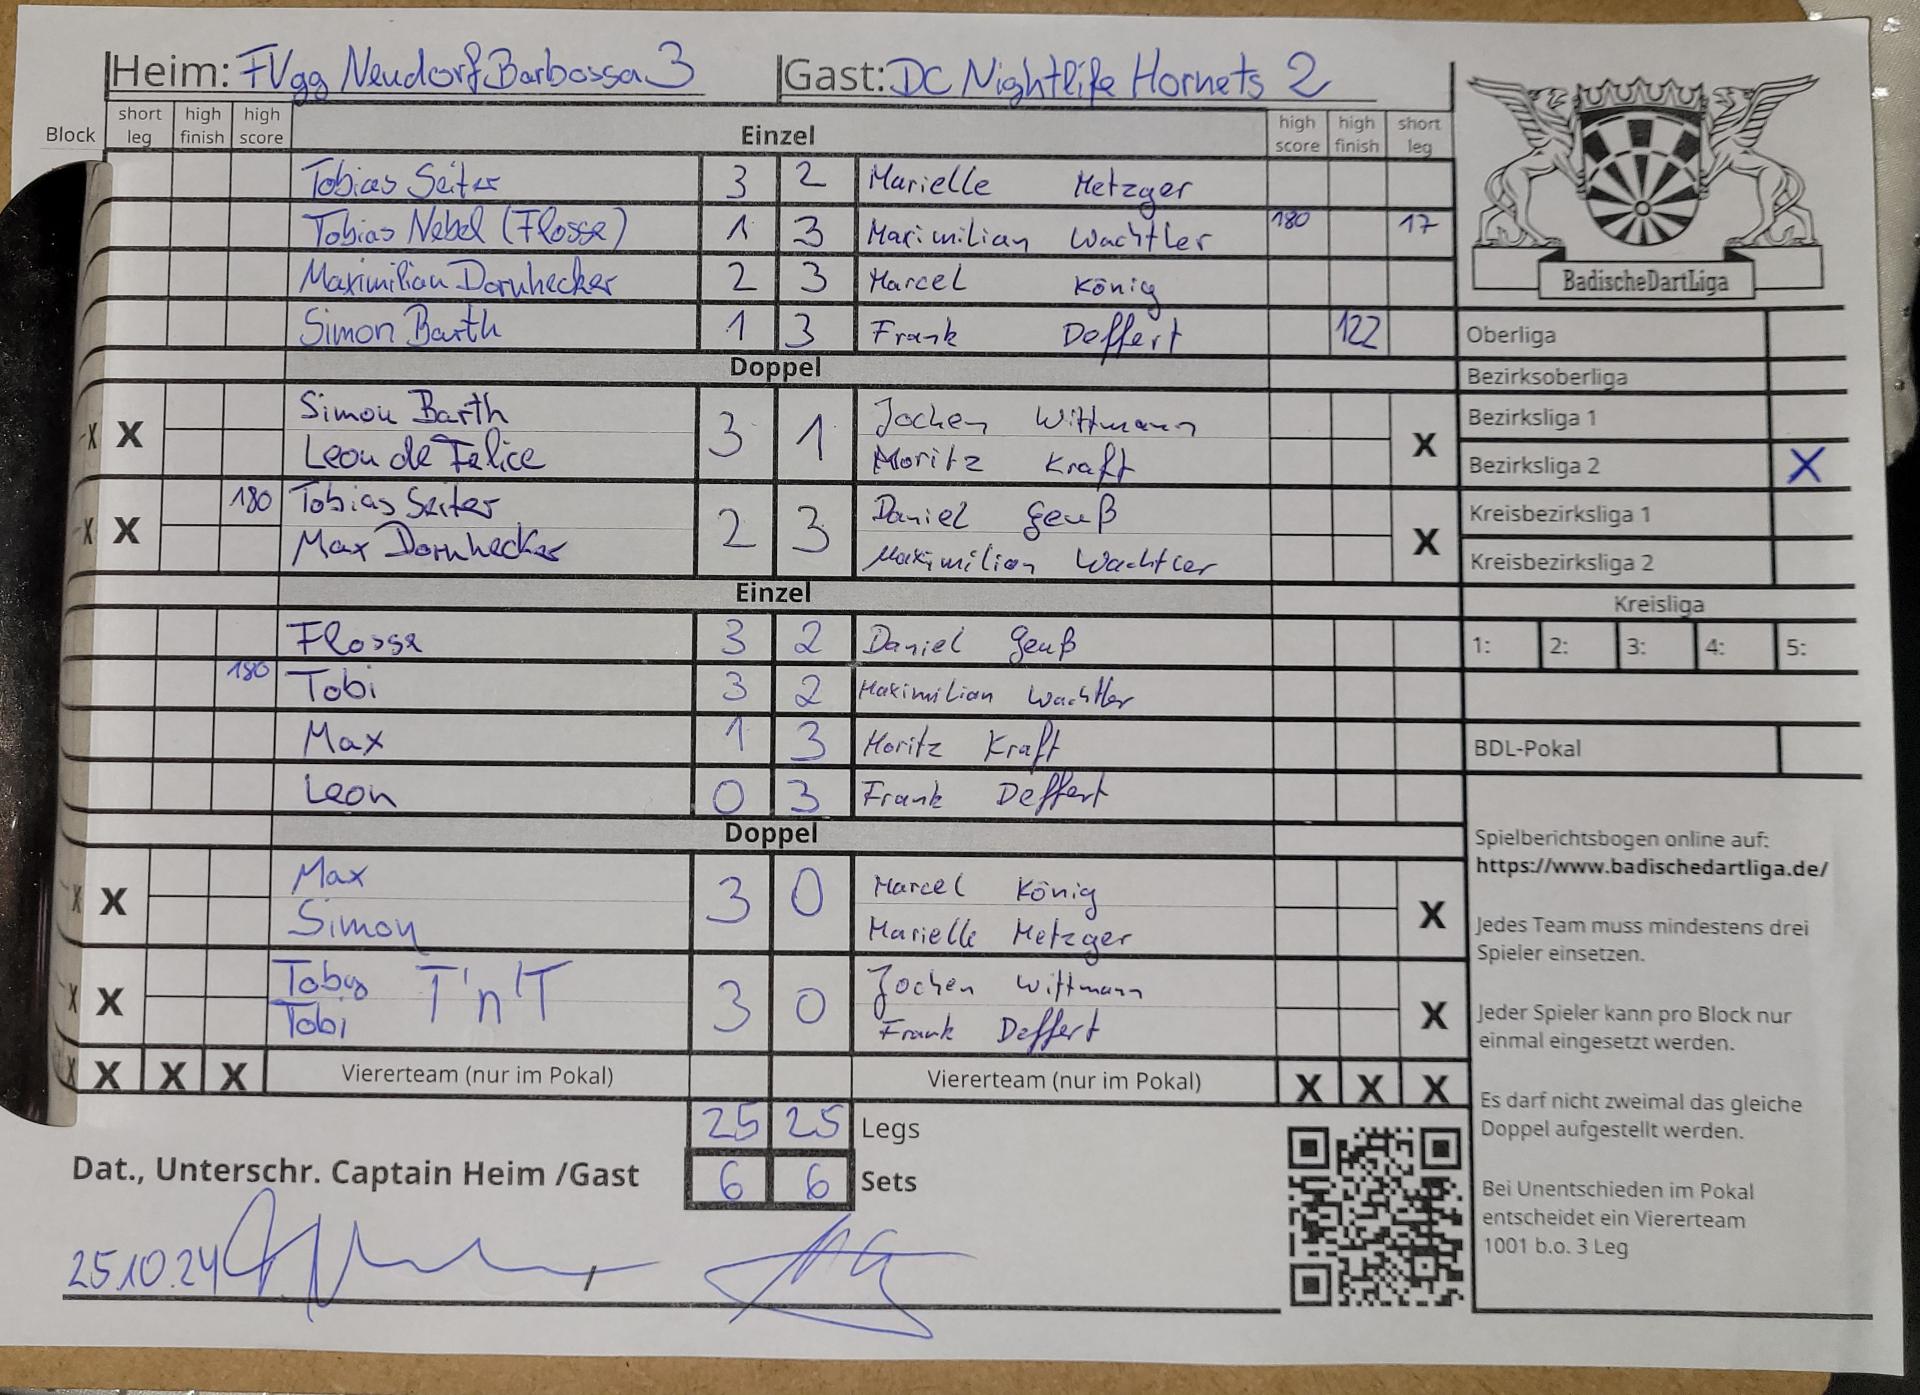 Heim: FVgg Neudorf Barbossa 3 Gast: DC Nightlife Hornets 2
Block short leg high finish high score Einzel high score high finish short leg
Tobias Seiter 3 2 Marielle Metzger
Tobias Nebel (Flosse) 1 3 Maximilian Wachtler 180 17
Maximilian Dornhecker 2 3 Marcel König
Simon Barth 1 3 Frank Deffert 122
Doppel
X X Simon Barth 3 1 Jochen Wittmann X
Leon de Felice Moritz Kraft
X X 180 Tobias Seiter 2 3 Daniel Geuß X
Max Dornhecker Maximilian Wachtler
Einzel
Flosse 3 2 Daniel Geuß
180 Tobi 3 2 Maximilian Wachtler
Max 1 3 Moritz Kraft
Leon 0 3 Frank Deffert
Doppel
X X Max 3 0 Marcel König X
Simon Marielle Metzger
X X Toby T'n'T 3 0 Jochen Wittmann X
Tobi Frank Deffert
X X X X Viererteam (nur im Pokal) Viererteam (nur im Pokal) X X X
25 25 Legs
Dat., Unterschr. Captain Heim /Gast 6 6 Sets
25.10.24
BadischeDartLiga
Oberliga
Bezirksoberliga
Bezirksliga 1
Bezirksliga 2 X
Kreisbezirksliga 1
Kreisbezirksliga 2
Kreisliga
1: 2: 3: 4: 5:
BDL-Pokal
Spielberichtsbogen online auf:
https://www.badischedartliga.de/
Jedes Team muss mindestens drei
Spieler einsetzen.
Jeder Spieler kann pro Block nur
einmal eingesetzt werden.
Es darf nicht zweimal das gleiche
Doppel aufgestellt werden.
Bei Unentschieden im Pokal
entscheidet ein Viererteam
1001 b.o. 3 Leg